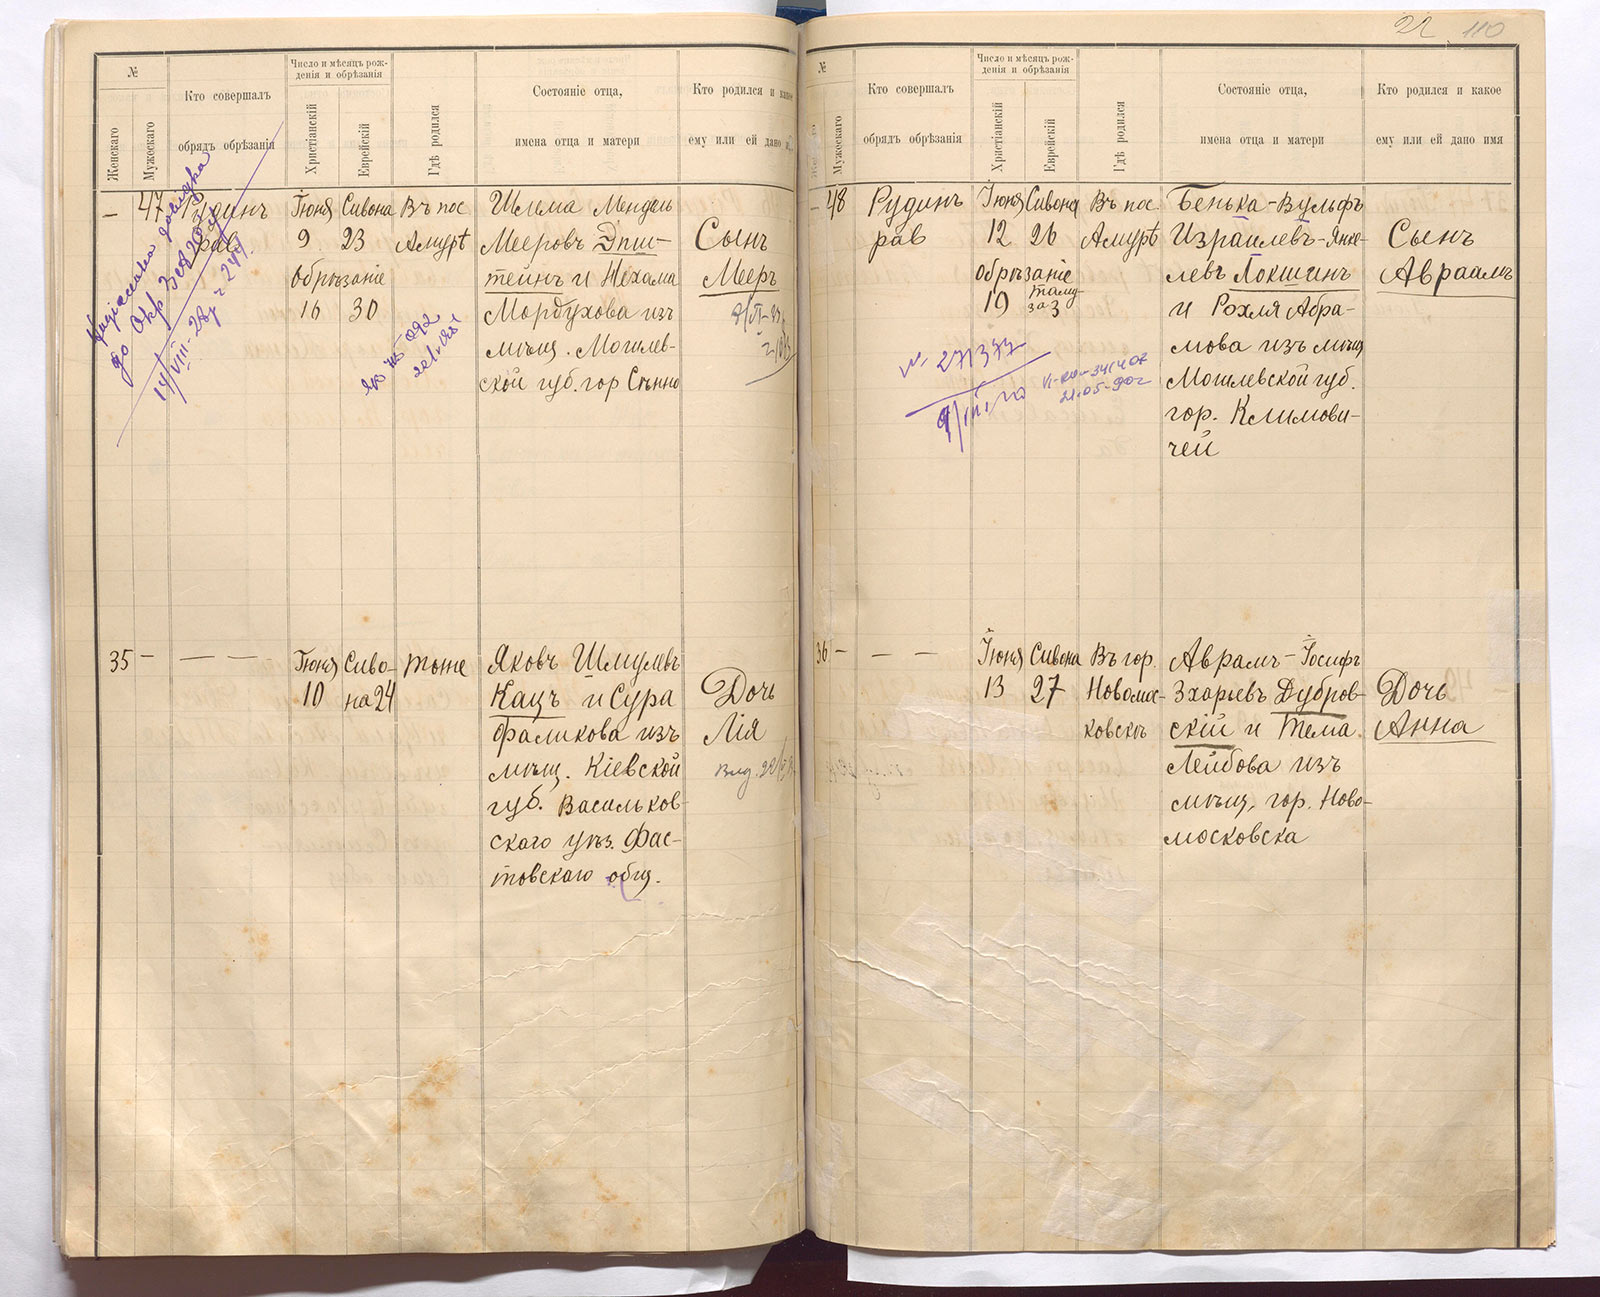 22 110
№
Женскаго
Мужескаго
Кто совершалъ
обрядъ обрѣзанія
Число и мѣсяцъ рож-
денія и обрѣзанія
Христіанскій
Еврейскій
Гдѣ родился
Состояніе отца,
имена отца и матери
Кто родился и какое
ему или ей дано
47
Рудинъ
рав
Іюня
9
Сивона
23
Обрѣзаніе
16 30
Въ пос
Амурѣ
Шлема Мендель
Мееровъ Эпш-
тейнъ и Нехама
Мордухова изъ
мѣщ. Могилев-
ской губ. гор Сѣнно
Сынъ
Мееръ
35 —
— — —
Іюня
10
Сиво-
на 24
Тоже
Яковъ Шмулевъ
Кацъ и Сура
Фаликова изъ
мѣщ. Кіевской
губ. Васильков-
ского уѣз. Фас-
товскаго общ.
Дочь
Лія
№
Мужескаго
Кто совершалъ
обрядъ обрѣзанія
Число и мѣсяцъ рож-
денія и обрѣзанія
Христіанскій
Еврейскій
Гдѣ родился
Состояніе отца,
имена отца и матери
Кто родился и какое
ему или ей дано имя
— 48
Рудинъ
рав
Іюня
12
Сивона
26
Обрѣзаніе
19 Таму-
за 3
Въ пос.
Амурѣ
Бенька-Вульфъ
Израилевъ-Янке-
левъ Локшинъ
и Рохля Абра-
мова изъ мѣщ
Могилевской губ.
гор. Климови-
чей
Сынъ
Авраамъ
№ 271377
VI-КИ-341402
21.05-90г
36 —
— — —
Іюня
13
Сивона
27
Въ гор.
Новомос-
ковскѣ
Аврамъ-Іосифъ
Зхарьевъ Дубров-
скій и Тема
Лейбова изъ
мѣщ. гор. Ново-
московска
Дочь
Анна